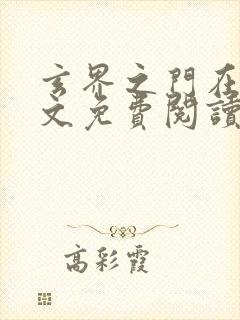 玄界之門在
文免費閱讀
高彩霞